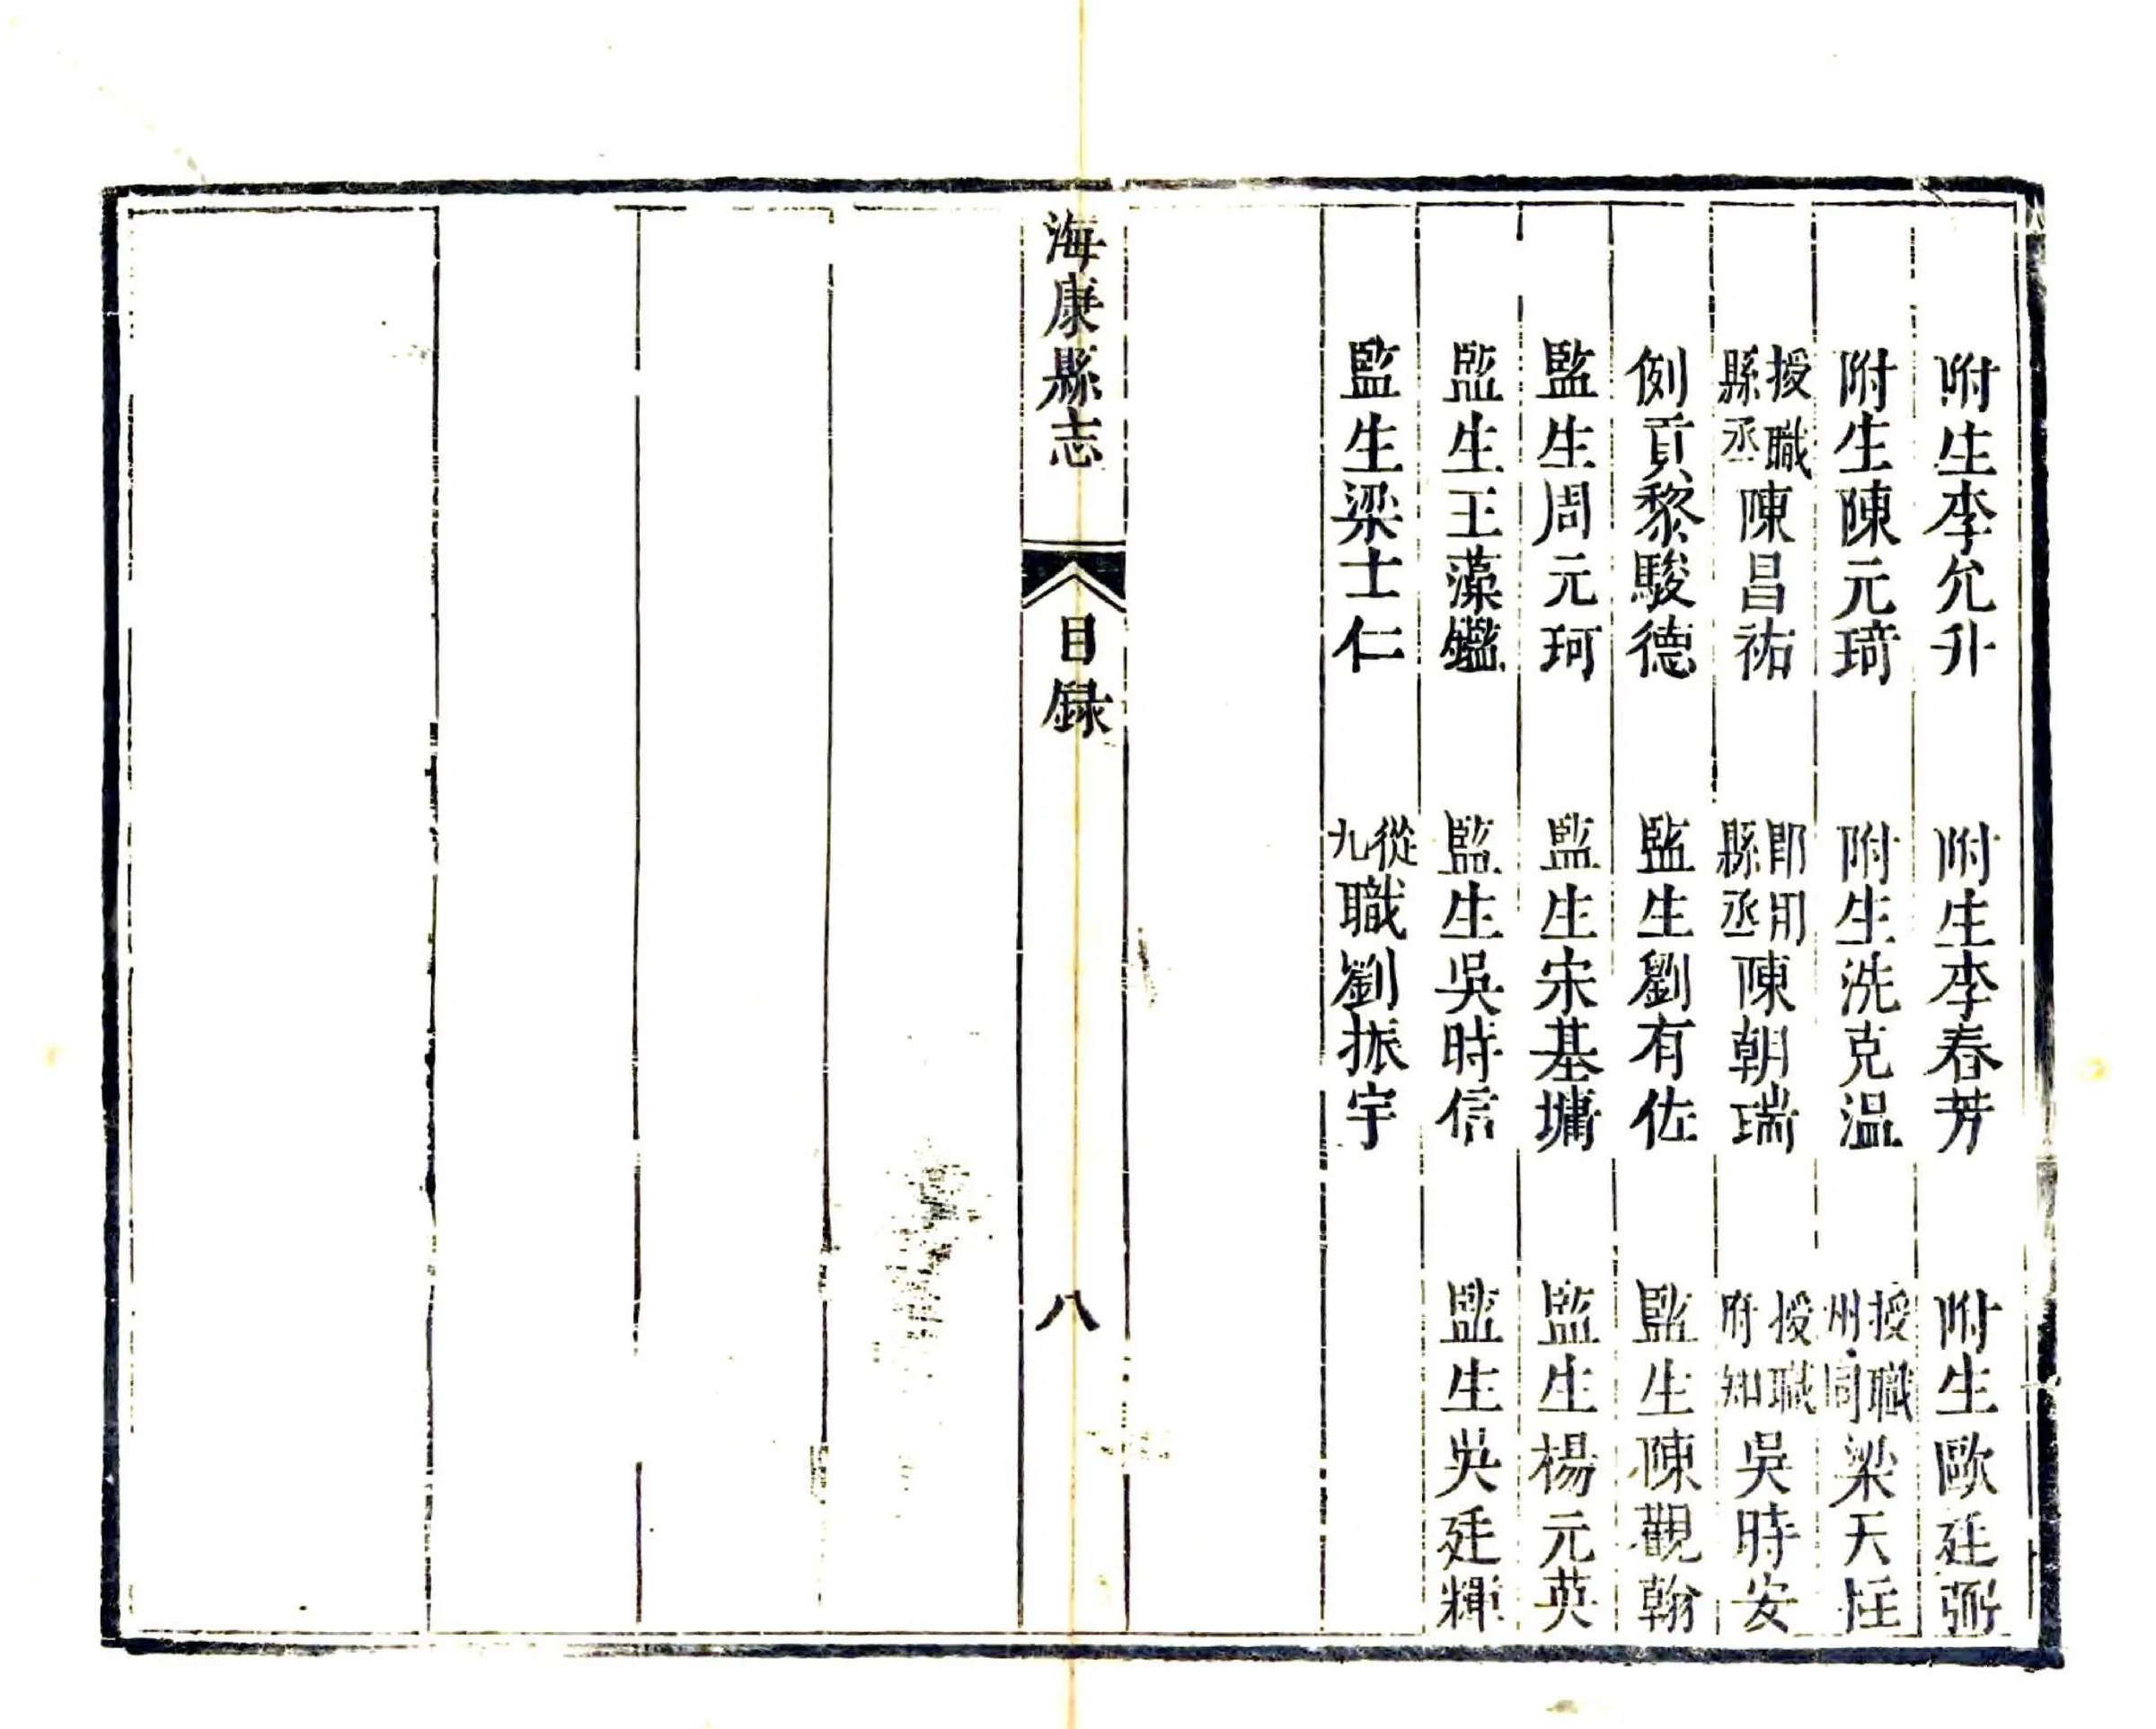 附生李允升　附生李春芳　附生歐廷弼
附生陳元琦　附生洗克溫　授職州同梁天
授職縣丞陳昌祐　即用縣丞陳朝瑞　授職府知吳時安
例貢黎駿德　監生劉有佐　監生陳觀翰
監生周元珂　監生宋基墉　監生楊元英
監生王藻鑑　監生吳時信　監生吳廷輝
監生梁士仁　從九職劉振宇
海康縣志　目錄　八